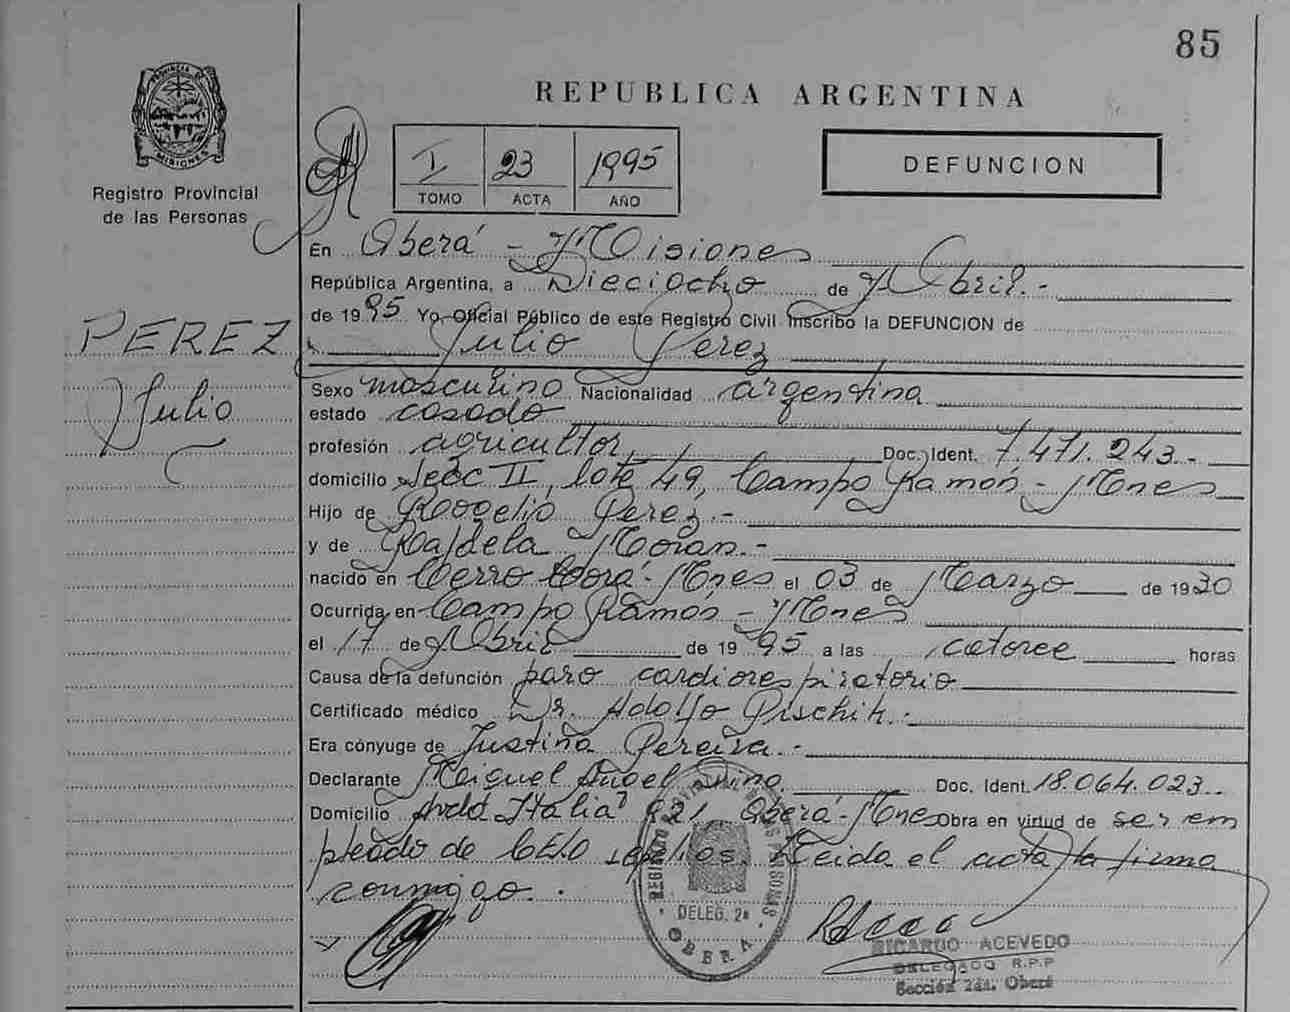 85
REPUBLICA ARGENTINA
PROVINCIA DE
MISIONES
Registro Provincial
de las Personas
I 23 1995
TOMO ACTA AÑO
DEFUNCION
En Oberá - Misiones
República Argentina, a Dieciocho de Abril.-
de 1995 Yo, Oficial Público de este Registro Civil inscribo la DEFUNCION de
Julio Perez
PEREZ
Julio
Sexo masculino Nacionalidad argentina
estado casado
profesión agricultor Doc. Ident. 7.471.243.-
domicilio Secc II, lote 49, Campo Ramón - Mnes
Hijo de Rogelio Perez.-
y de Moran.-
nacido en Cerro Corá - Mnes el 03 de Marzo de 1930
Ocurrida en Campo Ramón - Mnes
el 17 de Abril de 1995 a las catorce horas
Causa de la defunción paro cardiorespiratorio
Certificado médico Dr. Adolfo
Era cónyuge de Justina Pereira.-
Declarante Miguel Angel Doc. Ident. 18.064.023.-
Domicilio Avda Italia 821, Oberá - Mnes Obra en virtud de ser em
pleado de CELO sepelios. Leida el acta la firma
conmigo.
DELEG. 2ª
OBERA
RICARDO ACEVEDO
DELEGADO R.P.P
Sección 2da. Oberá